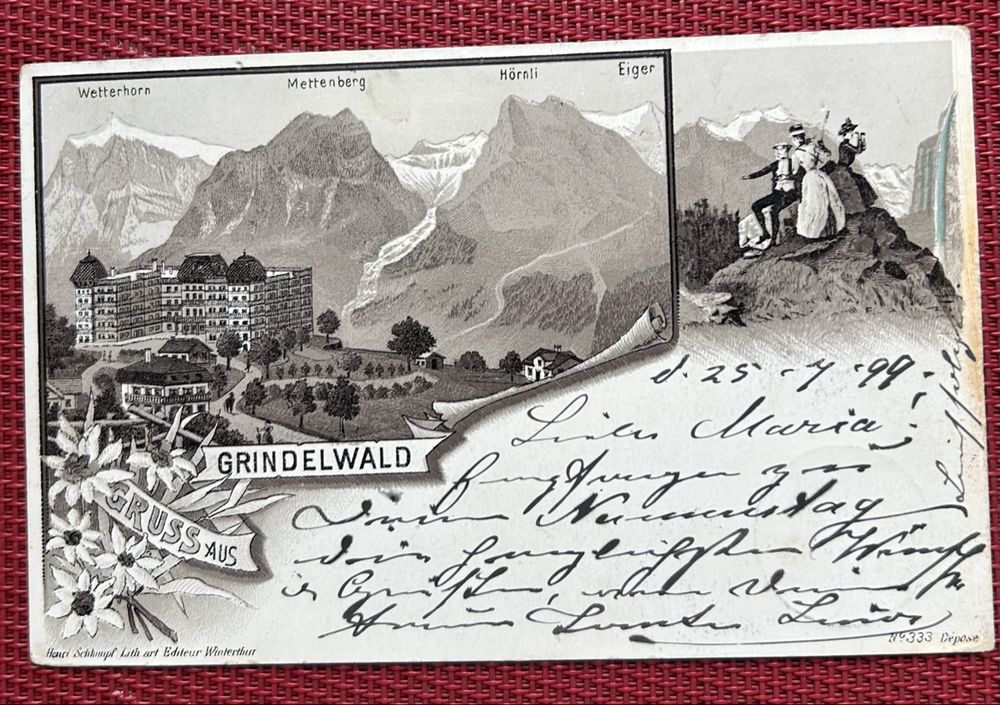 Wetterhorn
Mettenberg
Hörnli
Eiger
GRINDELWALD
GRUSS AUS
d. 25 - 7 - 99.
Liebe Maria!
Empfangen zu
Deinem Namenstag
die herzlichsten Wünsche
& Grüsse, von Deiner
Tante
No 333 Déposé
Henri Schlumpf Lith. art Editeur Winterthur